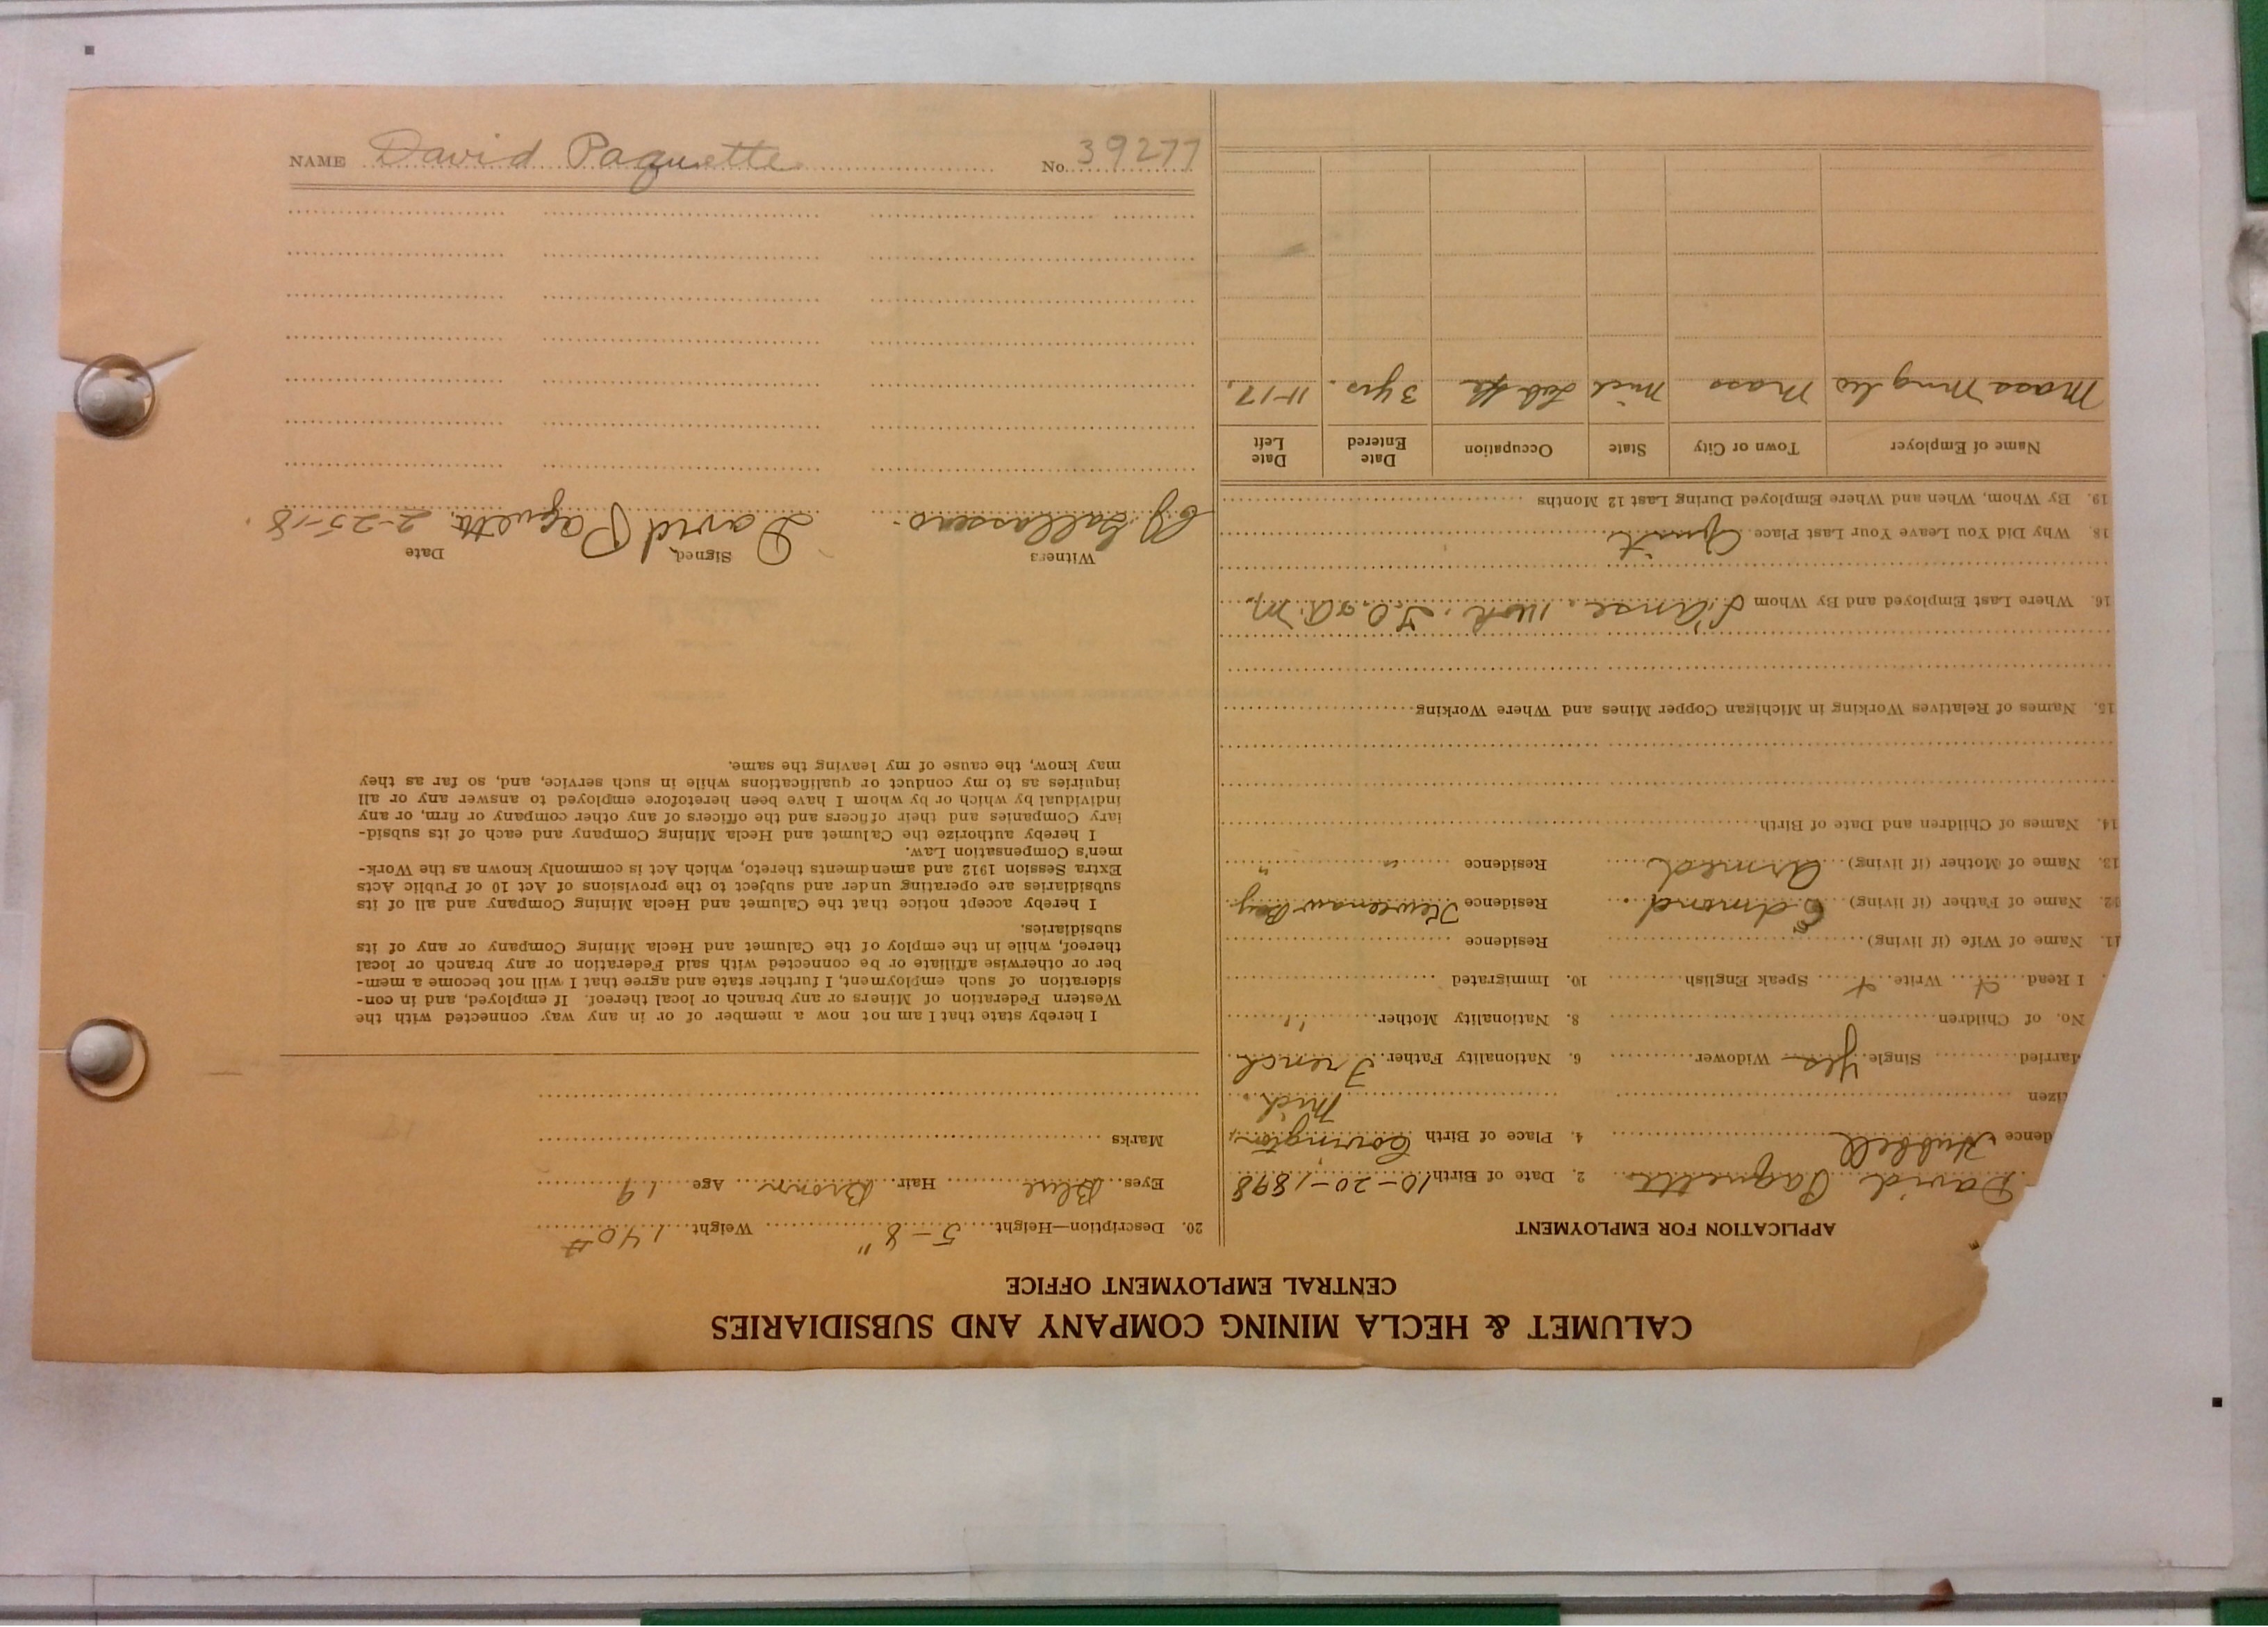 CALUMET & HECLA MINING COMPANY AND SUBSIDIARIES
CENTRAL EMPLOYMENT OFFICE
APPLICATION FOR EMPLOYMENT
David Paquette 2. Date of Birth 10-20-1898
dence Hubbell 4. Place of Birth Covington,
izen Mich.
arried Single Yes Widower 6. Nationality Father French
No. of Children 8. Nationality Mother "
I Read Write Speak English 10. Immigrated
11. Name of Wife (if living) Residence
12. Name of Father (if living) Edmond Residence Keweenaw Bay
13. Name of Mother (if living) Residence " "
14. Names of Children and Date of Birth
15. Names of Relatives Working in Michigan Copper Mines and Where Working
16. Where Last Employed and By Whom L'Anse, Mich.
18. Why Did You Leave Your Last Place Quit
19. By Whom, When and Where Employed During Last 12 Months
Name of Employer Town or City State Occupation Date Entered Date Left
Mass Mass Mich 3 yrs. 11-17.
20. Description—Height 5-8" Weight 140#
Eyes Blue Hair Brown Age 19
Marks
I hereby state that I am not now a member of or in any way connected with the
Western Federation of Miners or any branch or local thereof. If employed, and in con-
sideration of such employment, I further state and agree that I will not become a mem-
ber or otherwise affiliate or be connected with said Federation or any branch or local
thereof, while in the employ of the Calumet and Hecla Mining Company or any of its
subsidiaries.
I hereby accept notice that the Calumet and Hecla Mining Company and all of its
subsidiaries are operating under and subject to the provisions of Act 10 of Public Acts
Extra Session 1912 and amendments thereto, which Act is commonly known as the Work-
men's Compensation Law.
I hereby authorize the Calumet and Hecla Mining Company and each of its subsid-
iary Companies and their officers and the officers of any other company or firm, or any
individual by which or by whom I have been heretofore employed to answer any or all
inquiries as to my conduct or qualifications while in such service, and, so far as they
may know, the cause of my leaving the same.
Witness Signed, Date
David Paquette 2-25-18
NAME David Paquette No. 39277